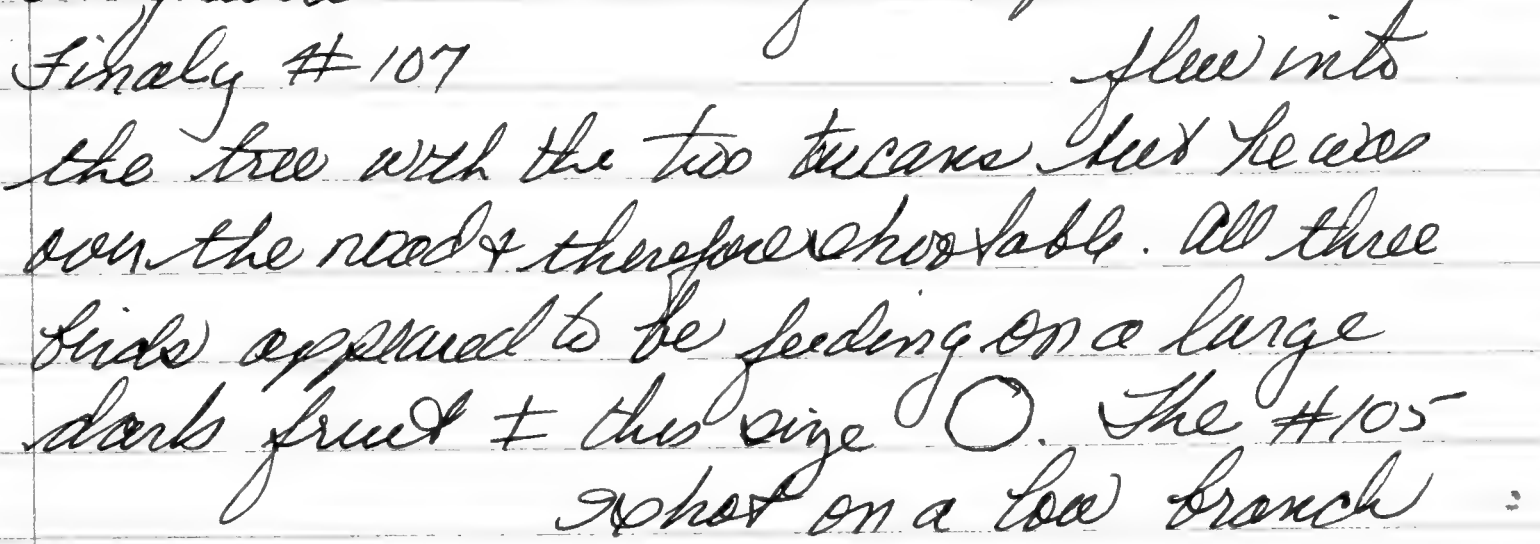 Finaly # 107 flew into
the tree with the two tucans but he was
over the road & therefore shootable. All three
birds appeared to be feeding on a large
dark fruit ± this size O. The #105
I shot on a low branch